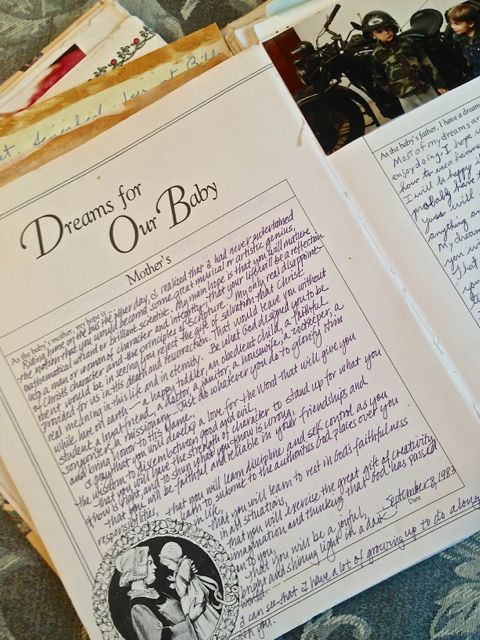 Dreams for
Our Baby
Mother's
As the baby's mother, my hope is
Riding home on the bus the other day, I realized that I had never entertained
the notion that you would become some great musical or artistic genius,
mathematical wizard or brilliant scientist. My main hope is that you will mature
into a man or woman of character and integrity, that your life will be a reflection
of Christ's character and the principles of Scripture. My only real disappoint-
ment would be in seeing you reject the gift of salvation that Christ
provided for us in His death and resurrection. That would leave you without
real meaning in this life and in eternity. Be what God designed you to be
while here on earth — a happy toddler, an obedient child, a faithful
student, a loyal friend, a doctor, a janitor, a housewife, a zookeeper, a
songwriter, a missionary... just do whatever you do to glorify Him
and bring honor to His name.
I pray that you will develop a love for the Word that will give you
the wisdom to discern between good and evil,
that you will have the strength of character to stand up for what you
know is right, and to shun what you know is wrong,
that you will be faithful and reliable in your friendships and
responsibilities,
that you will learn discipline and self control as you
learn to submit to the authorities God places over you
in life,
that you will learn to rest in God's faithfulness
in all situations,
that you will exercise the great gift of creativity,
imagination and thinking that God has passed
on to you,
that you will be a joyful,
bright and shining light in a dark
world.
September 8, 1983
Date
I can see that I have a lot of growing up to do along
with you.
As the baby's father, I have a dream
Most of my dreams ar
enjoy doing. I hope
how to use a hamm
I will be happy i
probably have t
you will
anything
My dream
you
what
your